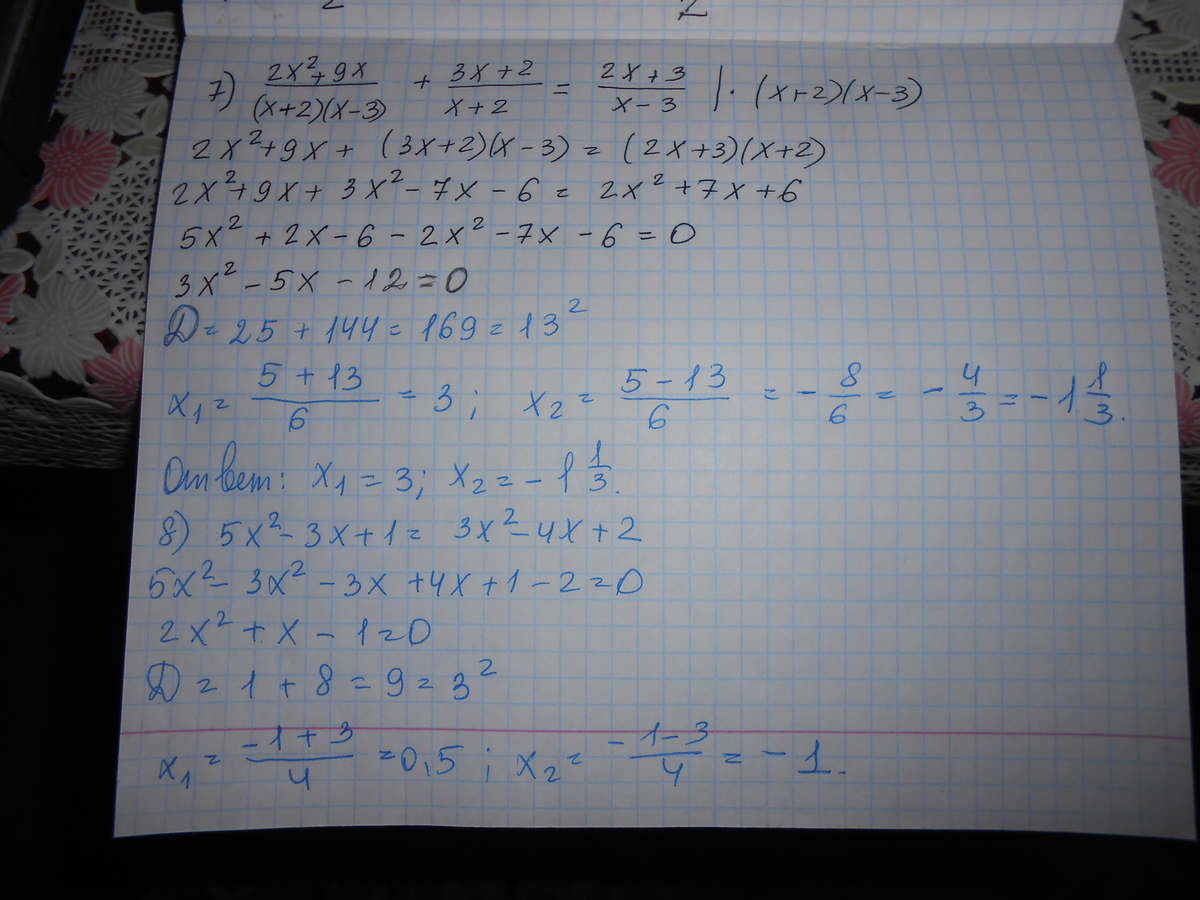 7) (2x²+9x)/((x+2)(x-3)) + (3x+2)/(x+2) = (2x+3)/(x-3) | · (x+2)(x-3)
2x²+9x+ (3x+2)(x-3) = (2x+3)(x+2)
2x²+9x+3x²-7x-6 = 2x²+7x+6
5x²+2x-6-2x²-7x-6=0
3x²-5x-12=0
D=25+144=169=13²
x₁= (5+13)/6 = 3; x₂= (5-13)/6 = -8/6 = -4/3 = -1 1/3.
Ответ: x₁=3; x₂=-1 1/3.
8) 5x²-3x+1= 3x²-4x+2
5x²-3x²-3x+4x+1-2=0
2x²+x-1=0
D=1+8=9=3²
x₁= (-1+3)/4 =0,5; x₂= (-1-3)/4 = -1.